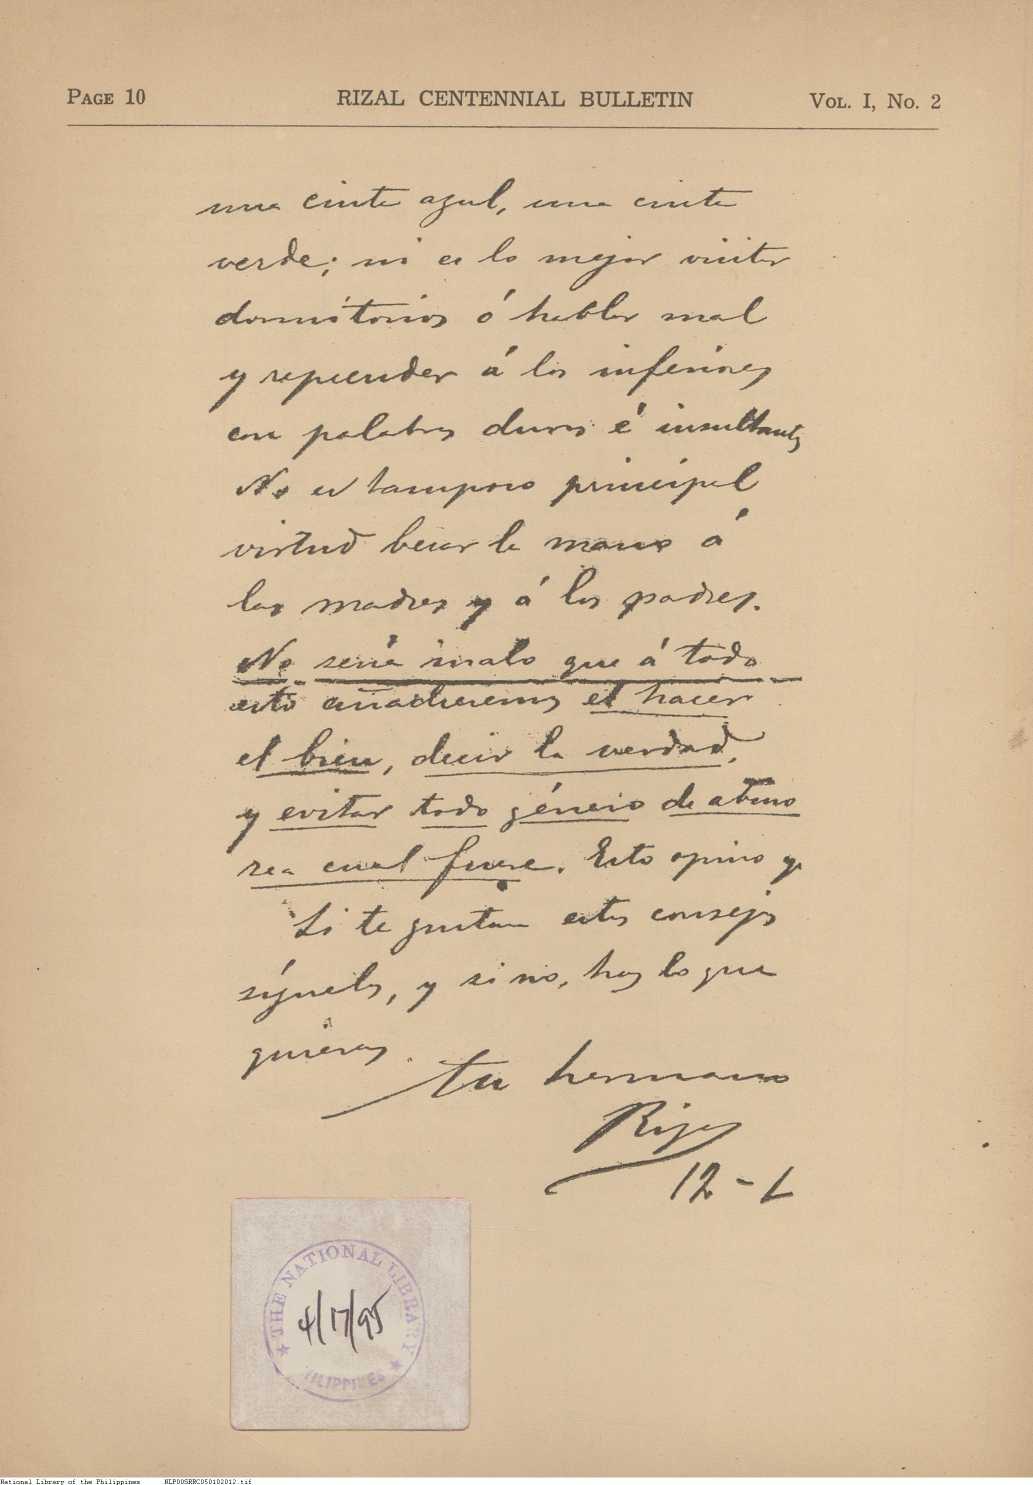 PAGE 10
RIZAL CENTENNIAL BULLETIN
VOL. I, No. 2
una cinta azul, una cinta
verde; ni es lo mejor visitar
dormitorios ó hablar mal
y reprender á los inferiores
con palabras duras é insultantes
No es tampoco principal
virtud besar la mano á
las madres y á los padres.
No sería malo que á todo
esto añadieremos el hacer
el bien, decir la verdad,
y evitar todo género de abuso
sea cual fuere. Esto opino yo
Si te gustan estos consejos
síguelos, y si no, haz lo que
quieras.
tu hermano
Rizal
12-L
THE NATIONAL LIBRARY
4/17/95
PHILIPPINES
National Library of the Philippines NLP00SRRC050102012.tif